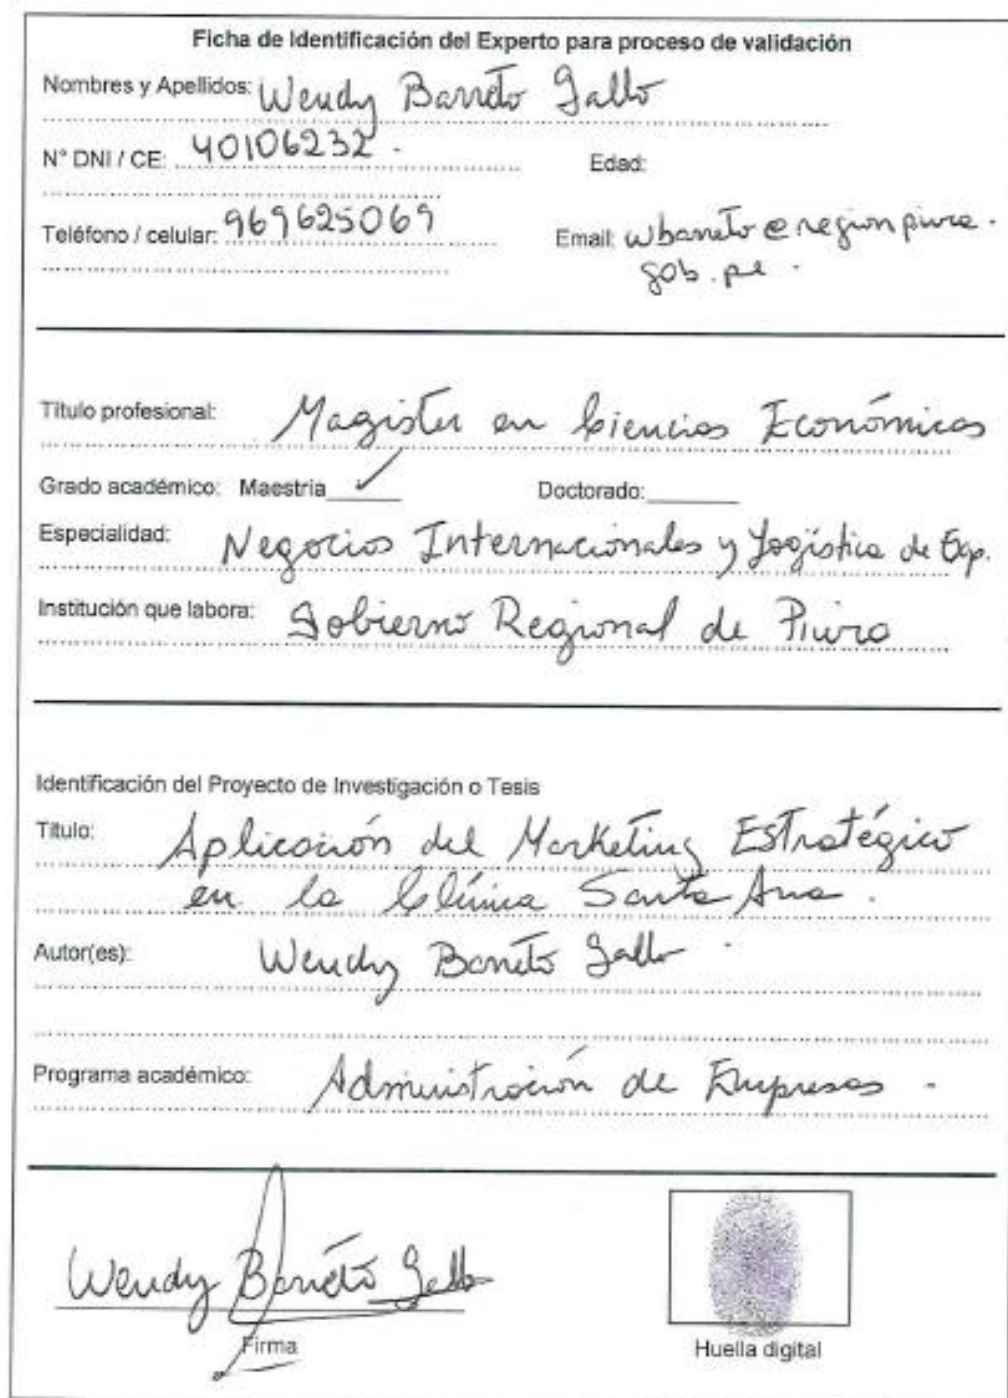 Ficha de Identificación del Experto para proceso de validación
Nombres y Apellidos: Wendy Barreto Gallo
N° DNI / CE: 40106232.
Edad:
Teléfono / celular: 969625069
Email: wbarreto@regionpiura.
gob.pe.
Título profesional: Magister en Ciencias Económicas
Grado académico: Maestria ✓ Doctorado:
Especialidad: Negocios Internacionales y Logística de Exp.
Institución que labora: Gobierno Regional de Piura
Identificación del Proyecto de Investigación o Tesis
Título: Aplicación del Marketing Estratégico
en la Clínica Santa Ana.
Autor(es): Wendy Barreto Gallo.
Programa académico: Administración de Empresas.
Wendy Barreto Gallo
Firma
Huella digital